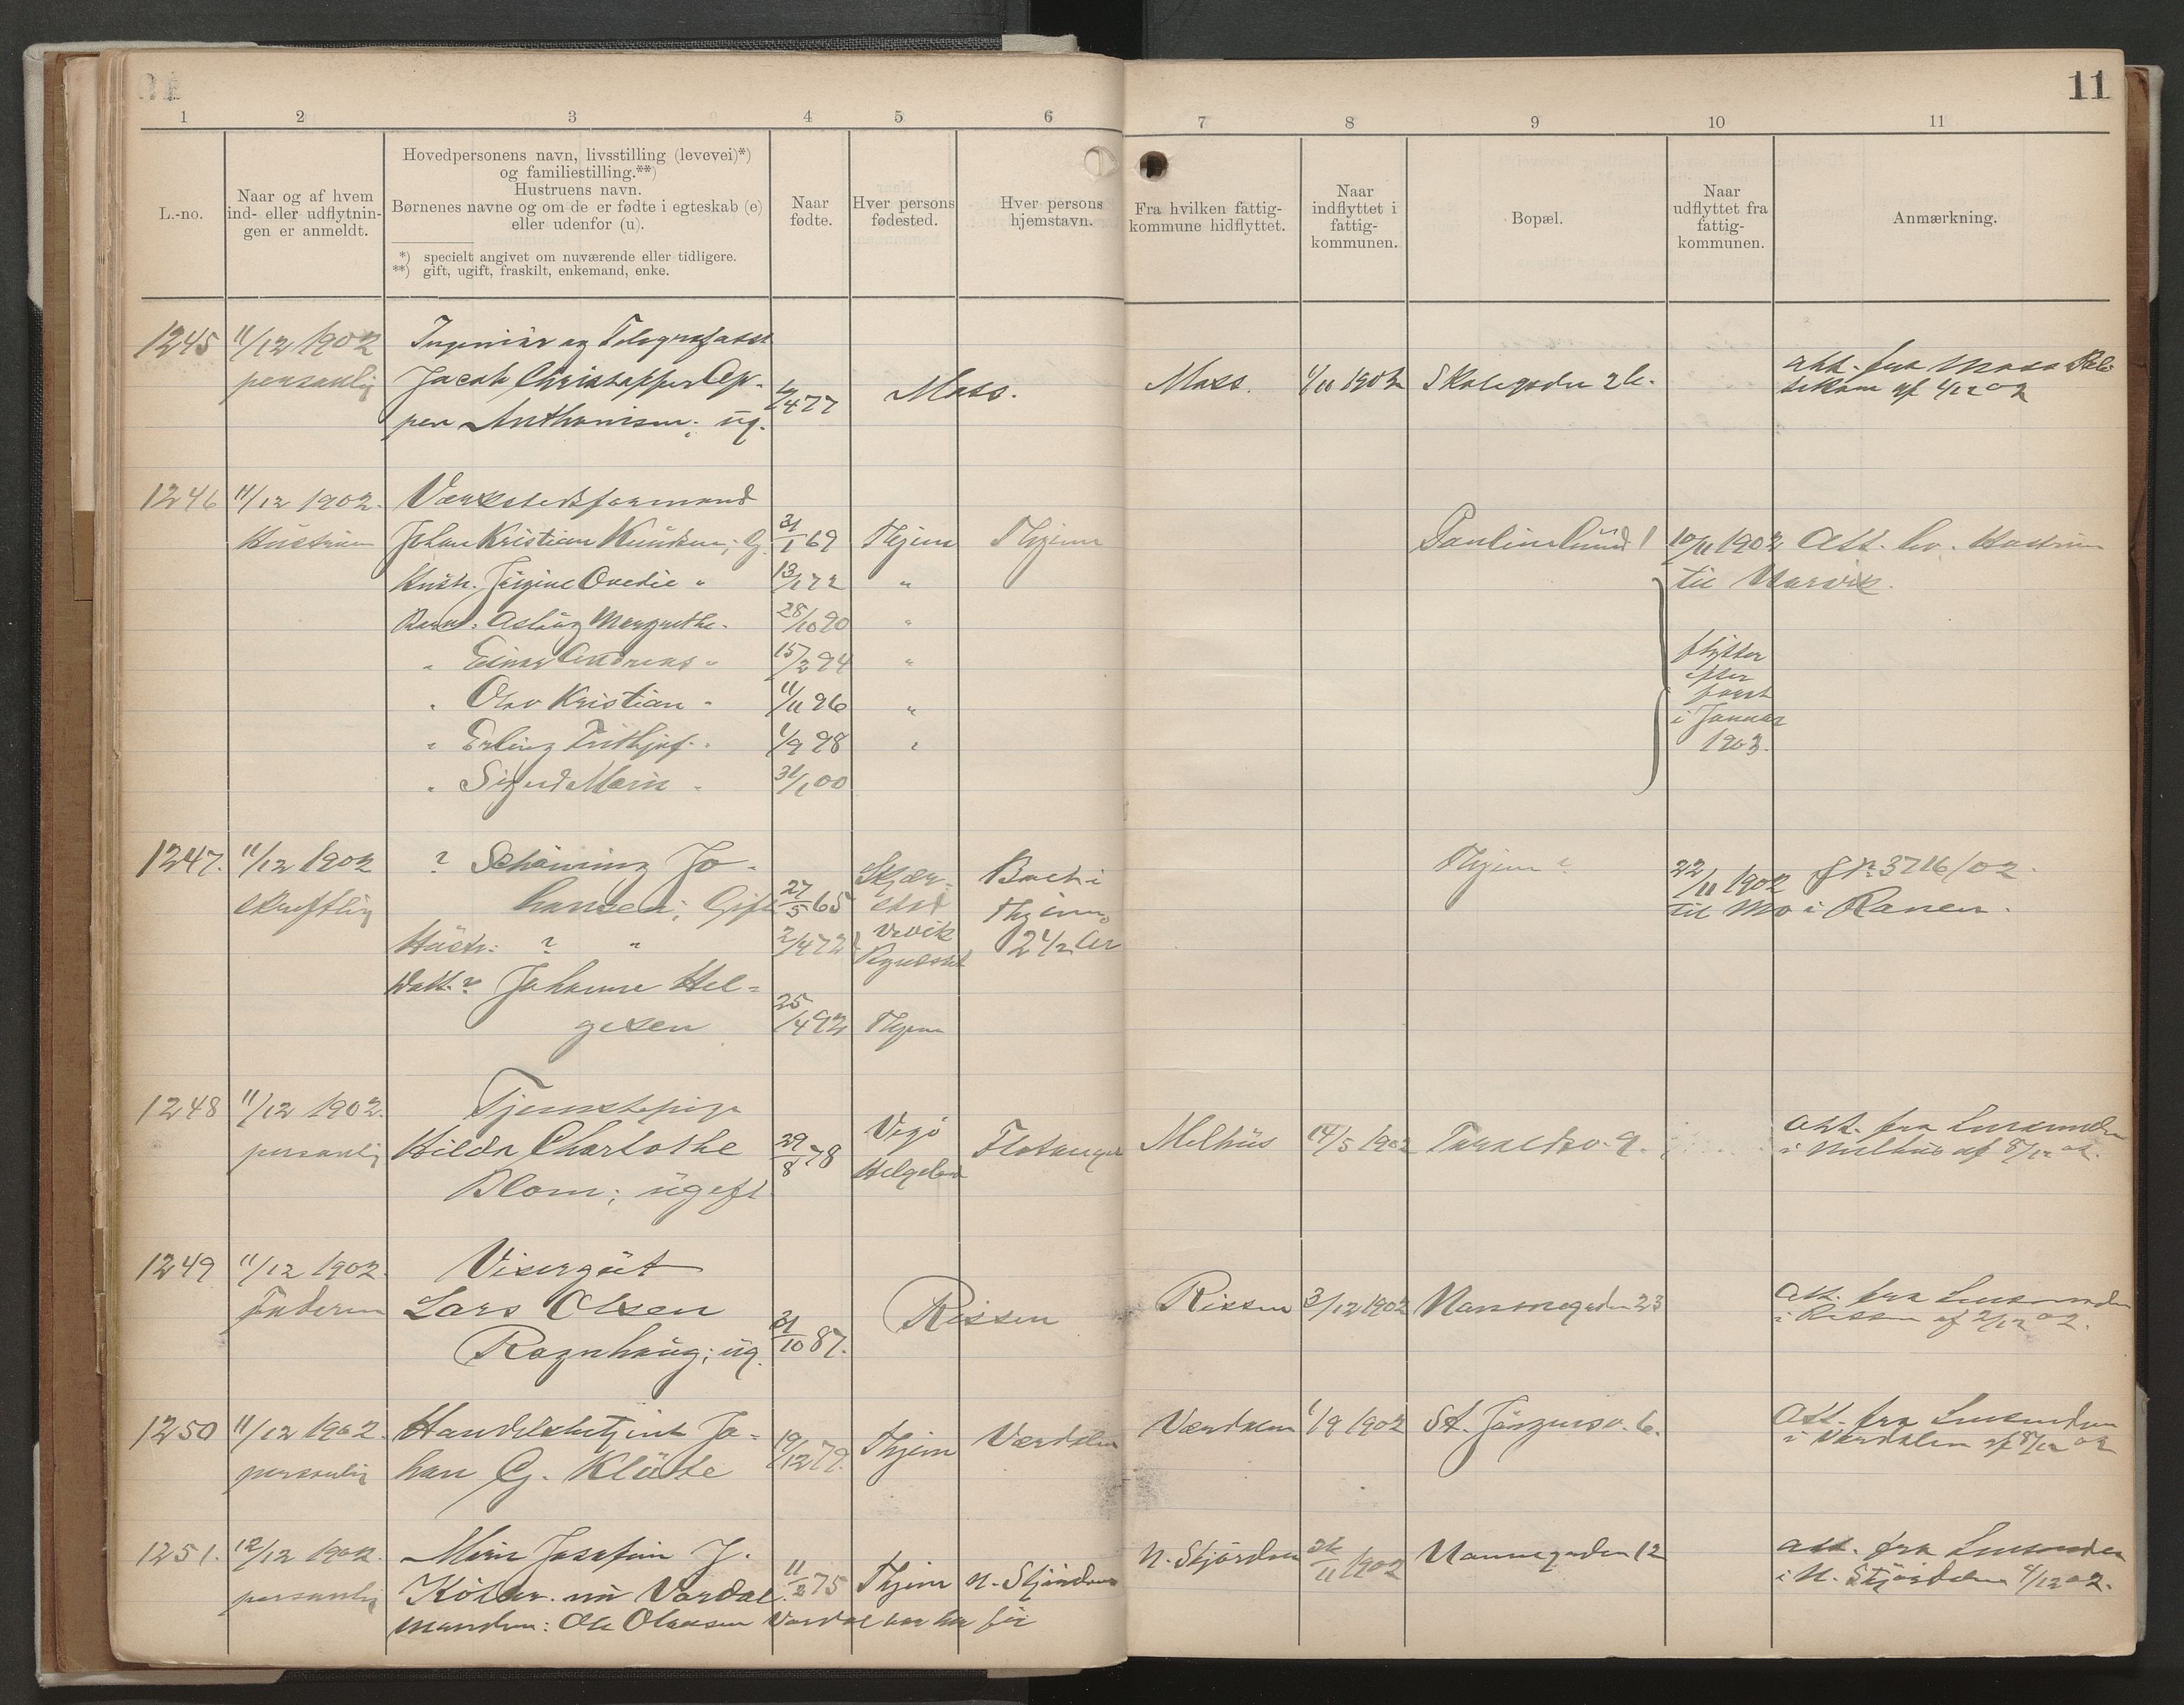 11
1 2 3 4 5 6 7 8 9 10 11
L.-no.
Naar og af hvem
ind- eller udflytnin-
gen er anmeldt.
Hovedpersonens navn, livsstilling (levevei)*)
og familiestilling.**)
Hustruens navn.
Børnenes navne og om de er fødte i egteskab (e)
eller udenfor (u).
*) specielt angivet om nuværende eller tidligere.
**) gift, ugift, fraskilt, enkemand, enke.
Naar
fødte.
Hver persons
fødested.
Hver persons
hjemstavn.
Fra hvilken fattig-
kommune hidflyttet.
Naar
indflyttet i
fattig-
kommunen.
Bopæl.
Naar
udflyttet fra
fattig-
kommunen.
Anmærkning.
1245 11/12 1902 Ingeniør og Telegrafasst
personlig Jacob Christopher Op- Moss. Moss. 1/11 1902 Skolegaden 26. att. fra Moss
pen Anthonisen; ug. 477
1246 11/12 1902. Værkstedsformand
Hustruen Johan Kristian Knudsen; G. 31/1 69 Thjem Thjem Paulinelund 1 10/11 1902 Att. lev. Hustruen
Hustr. Jørgine Ovedie " 13/1 72 " til Narvik.
Barn: Aslaug Margrethe " 28/10 90 "
" Einar Andreas " 15/2 94 " flytter
efter
" Olav Kristian " 11/11 96 " først
i Januar
" Erling Frithjof " 1/9 98 " 1903.
" Sigurd Marin " 31/1 00
1247. 11/12 1902 ? Schøning Jo- Skjær- Boet i Thjem ? 22/11 1902 J No 3716/02.
skriftlig hansen; Gift 27/5 65 stad Thjem til Mo i Ranen.
Hustr: ? " 2/4 72 2 1/2 Aar
Datt. ? Johanne Hel-
gesen 25/4 92 Thjem
1248 11/12 1902. Tjenestepige
personlig Hilda Charlotte 29/8 78 Vegø Melhus 14/5 1902 att. fra Lensmanden
Blom; ugift Helgeland i Melhus af 8/12 02.
1249 11/12 1902. Visergut
Faderen Lars Olsen Rissen Rissen 3/12 1902 Nannegaden 23 Att. fra Lensmanden
Ragnhaug; ug. 31/10 87. i Rissen af 2/12 02.
1250 11/12 1902. Handelsbetjent Jo- 19/12 79. Thjem Værdalen Værdalen 1/9 1902 St. Jørgensv. 6. Att. fra Lensmanden
personlig han G. Klüwe i Værdalen af 8/12 02
1251. 12/12 1902. Marie Josefine J. 11/2 75 Thjem N. Stjørdalen N. Stjørdalen 26/11 1902 Nannegaden 12 att. fra Lensmanden
personlig Vordal. i N. Stjørdalen 4/12 02.
manden: Ole Olausen Vordal bor her før